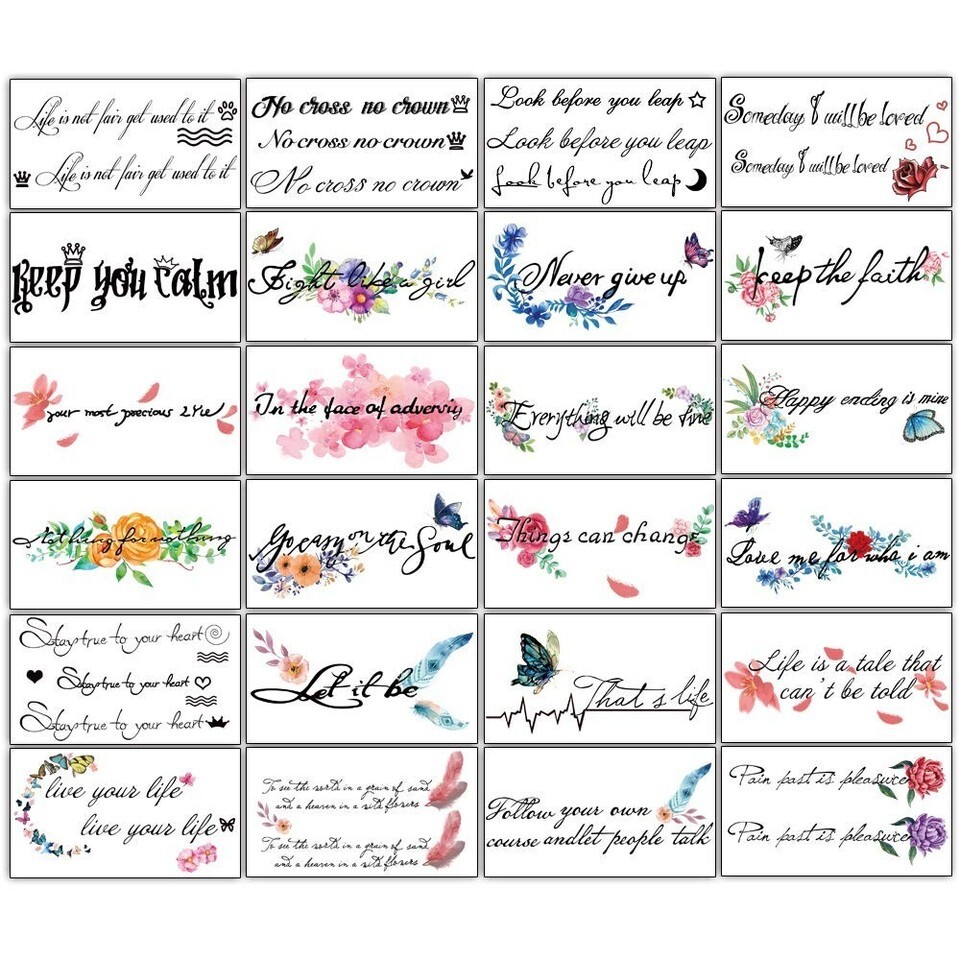 Life is not fair get used to it
Life is not fair get used to it
No cross no crown
No cross no crown
No cross no crown
Look before you leap
Look before you leap
Look before you leap
Someday I will be loved
Someday I will be loved
keep you calm
Fight like a girl
Never give up
keep the faith
your most precious
In the face of adversiy
Everything will be fine
Happy ending is mine
Nothing for nothing
Go easy on the Soul
Things can change
Love me for who i am
Stay true to your heart
Stay true to your heart
Stay true to your heart
Let it be
That's life
Life is a tale that
can't be told
live your life
live your life
To see the world in a grain of sand
and a heaven in a wild flowers
To see the world in a grain of sand
and a heaven in a wild flowers
Follow your own
course and let people talk
Pain past is pleasure
Pain past is pleasure